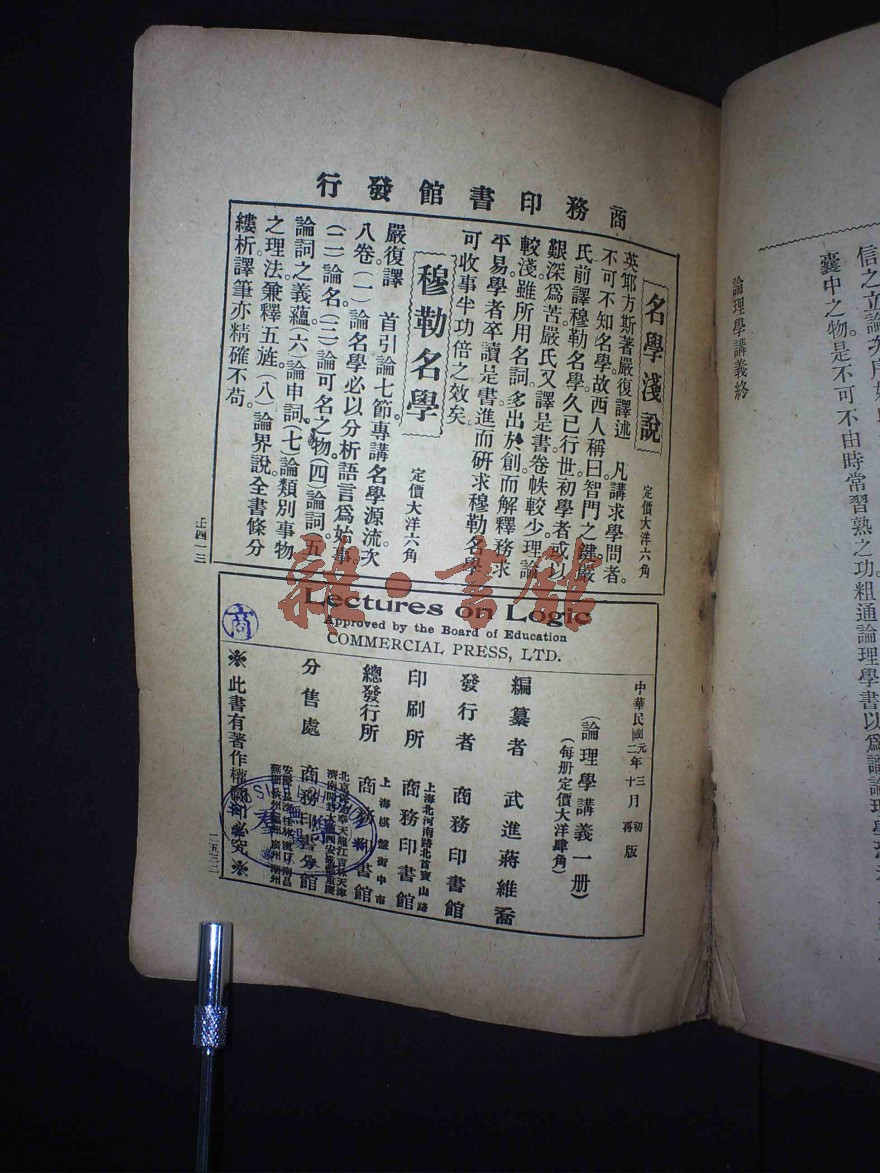 信之立論次序
囊中之物是不可不由時常習熟之功粗通論理學書以爲識論理學
論理學講義終
商務印書館發行
名學淺說
定價大洋六角
英耶方斯著嚴復譯述 凡講求學問者。
不可不知名學。故西人稱曰智門之鍵嚴
氏前譯穆勒名學。久已行世。初學者或以
艱深爲苦嚴氏又譯是書卷帙較少。理論
較淺。雖所用名詞。多出於創而解釋務求
平易學者卒讀是書進而研求穆勒名學
可收事半功倍之效矣。
穆勒名學
定價大洋六角
嚴復譯 首引論七節專講名學源流。次
八卷。(一)論名學必以分析語言爲始事
(二)論名。(三)論可名之物。(四)論詞。(五
論詞之義蘊。(六)論申詞(七)論類別事物
之理法兼釋五旌。(八)論界說。全書條分
縷析。譯筆亦精確不苟。
正四一三
Lectures on Logic
Approved by the Board of Education
COMMERCIAL PRESS, LTD.
中華民國元年三月初版
二年十月再版
(論理學講義一册)
(每册定價大洋肆角)
編纂者 武進蔣維喬
發行者 商務印書館
上海北河南路北首寶山路
印刷所 商務印書館
上海棋盤街中市
總發行所 商務印書館
分售處 商務印書分館
※此書有著作權翻印必究※
二五三二
商
雜·書館